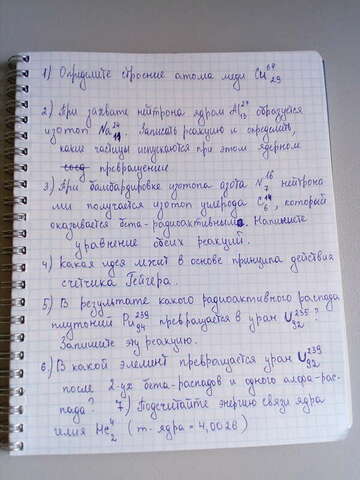 1) Определите строение атома меди Cu⁶⁴₂₉
2) При захвате нейтрона ядром Al²⁷₁₃ образуется
изотоп Na²⁴₁₁. Записать реакцию и определить,
какие частицы испускаются при этом ядерном
превращении
3) При бамбардировке изотопа азота N¹⁶₇ нейтрона
ми получается изотоп углерода C¹⁴₆, который
оказывается бета-радиоактивным. Напишите
уравнение обеих реакций.
4) Какая идея лежит в основе принципа действия
счетчика Гейгера.
5) В результате какого радиоактивного распада
плутоний Pu²³⁹₉₄ превращается в уран U²³⁵₉₂?
Запишите эту реакцию.
6) В какой элемент превращается уран U²³⁹₉₂
после 2-ух бета-распадов и одного альфа-рас-
пада? 7) Подсчитайте энергию связи ядра
гелия He⁴₂ (m-ядра = 4,0026)